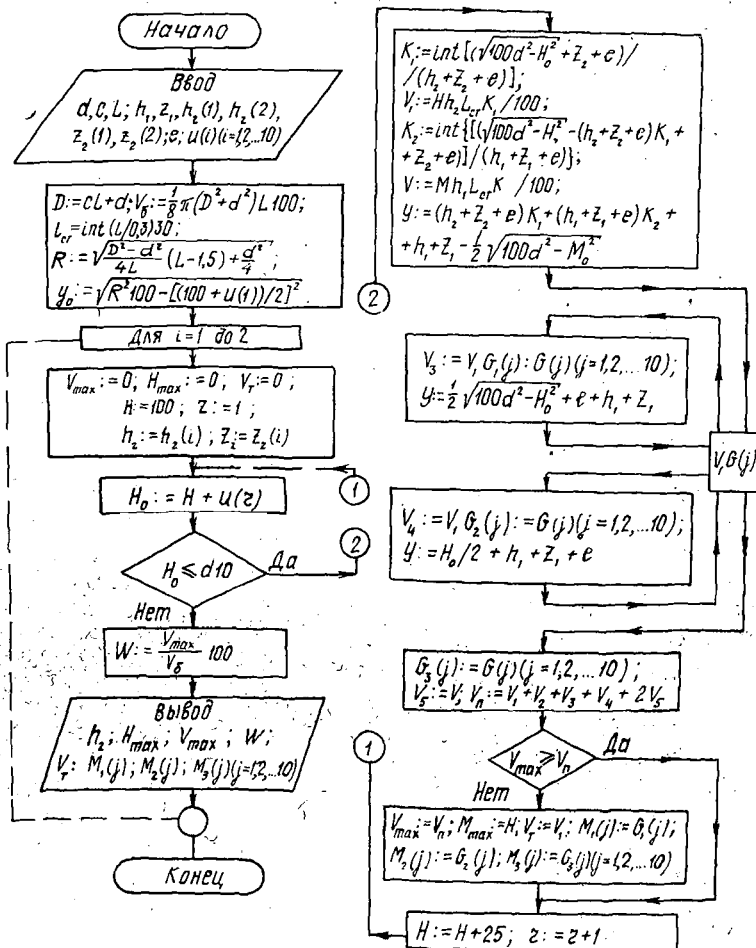 Начало
Ввод
d, c, L; h₁, z₁, h₂(1), h₂(2),
z₂(1), z₂(2); e; u(i)(i=1,2,...10)
D:=cL+d; V_б:=1/8 π(D²+d²)L100;
L_cr=int(L/0,3)30;
R:=√((D²-d²)/4L (L-1,5)+d²/4);
y₀:=√(R²100-[(100+u(1))/2]²)
Для i=1 do 2
V_max:=0; H_max:=0; V_т:=0;
H=100; z:=1;
h₂:=h₂(i); Z₂:=Z₂(i)
1
H₀:=H+u(z)
2
H₀≤d10
Да
Нет
W:=V_max/V_б 100
Вывод
h₂; H_max; V_max; W;
V_т: M₁(j); M₂(j); M₃(j)(j=1,2,...10)
Конец
2
K₁:=int[(√(100d²-H₀²)+Z₂+e)/
/(h₂+Z₂+e)];
V₁:=Hh₂L_crK₁/100;
K₂:=int{[(√(100d²-H₀²)-(h₂+Z₂+e)K₁+
+Z₂+e)]/(h₁+Z₁+e)};
V:=Mh₁L_crK /100;
y:=(h₂+Z₂+e)K₁+(h₁+Z₁+e)K₂+
+h₁+Z₁-1/2√(100d²-M₀²)
V₃:=V, G₁(j):G(j)(j=1,2,...10);
y:=1/2√(100d²-H₀²)+e+h₁+Z₁
V,G(j)
V₄:=V, G₂(j):=G(j)(j=1,2,...10);
y:=H₀/2+h₁+Z₁+e
G₃(j):=G(j)(j=1,2,...10);
V₅:=V; V_п:=V₁+V₂+V₃+V₄+2V₅
1
V_max≥V_п
Да
Нет
V_max:=V_п; M_max:=H; V_т:=V₁; M₁(j):=G₁(j);
M₂(j):=G₂(j); M₃(j):=G₃(j)(j=1,2,...10)
H:=H+25; z:=z+1